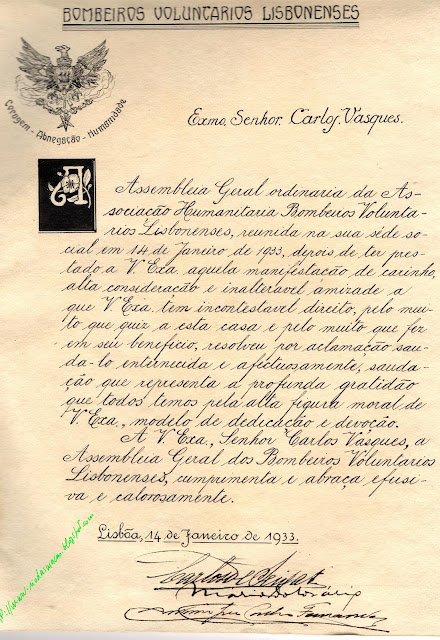 BOMBEIROS VOLUNTARIOS LISBONENSES
Coragem - Abnegação - Humanidade
Exmo. Senhor. Carlos Vasques.
A Assembleia Geral ordinaria da As-
sociação Humanitaria Bombeiros Volunta-
rios Lisbonenses, reunida na sua séde so-
cial em 14 de Janeiro de 1933, depois de ter pres-
tado a V. Exa. aquela manifestação de carinho,
alta consideração e inalteravel amizade a
que V. Exa. tem incontestavel direito, pelo mui-
to que quiz a esta casa e pelo muito que fez
em seu beneficio, resolveu por aclamação sau-
da-lo enternecida e afectuosamente, sauda-
ção que representa a profunda gratidão
que todos temos pela alta figura moral de
V. Exa., modelo de dedicação e devoção.
A V. Exa., Senhor Carlos Vasques, a
Assembleia Geral dos Bombeiros Voluntarios
Lisbonenses, cumprimenta e abraça efusi-
va e calorosamente.
Lisbôa, 14 de Janeiro de 1933.